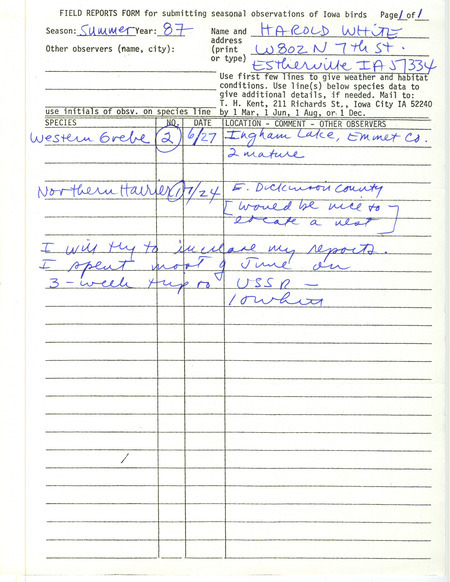 FIELD REPORTS FORM for submitting seasonal observations of Iowa birds Page 1 of 1
Season: Summer Year: 87
Name and address (print or type) HAROLD WHITE
W802 N 7th St.
Estherville IA 51334
Other observers (name, city):
Use first few lines to give weather and habitat
conditions. Use line(s) below species data to
give additional details, if needed. Mail to:
T. H. Kent, 211 Richards St., Iowa City IA 52240
use initials of obsv. on species line by 1 Mar, 1 Jun, 1 Aug, or 1 Dec.
SPECIES NO. DATE LOCATION - COMMENT - OTHER OBSERVERS
Western Grebe 2 6/27 Ingham Lake, Emmet Co.
2 mature
Northern Harrier 1 7/24 E. Dickinson County
[would be nice to
locate a nest]
I will try to increase my reports.
I spent most of June on
3-week trip to USSR -